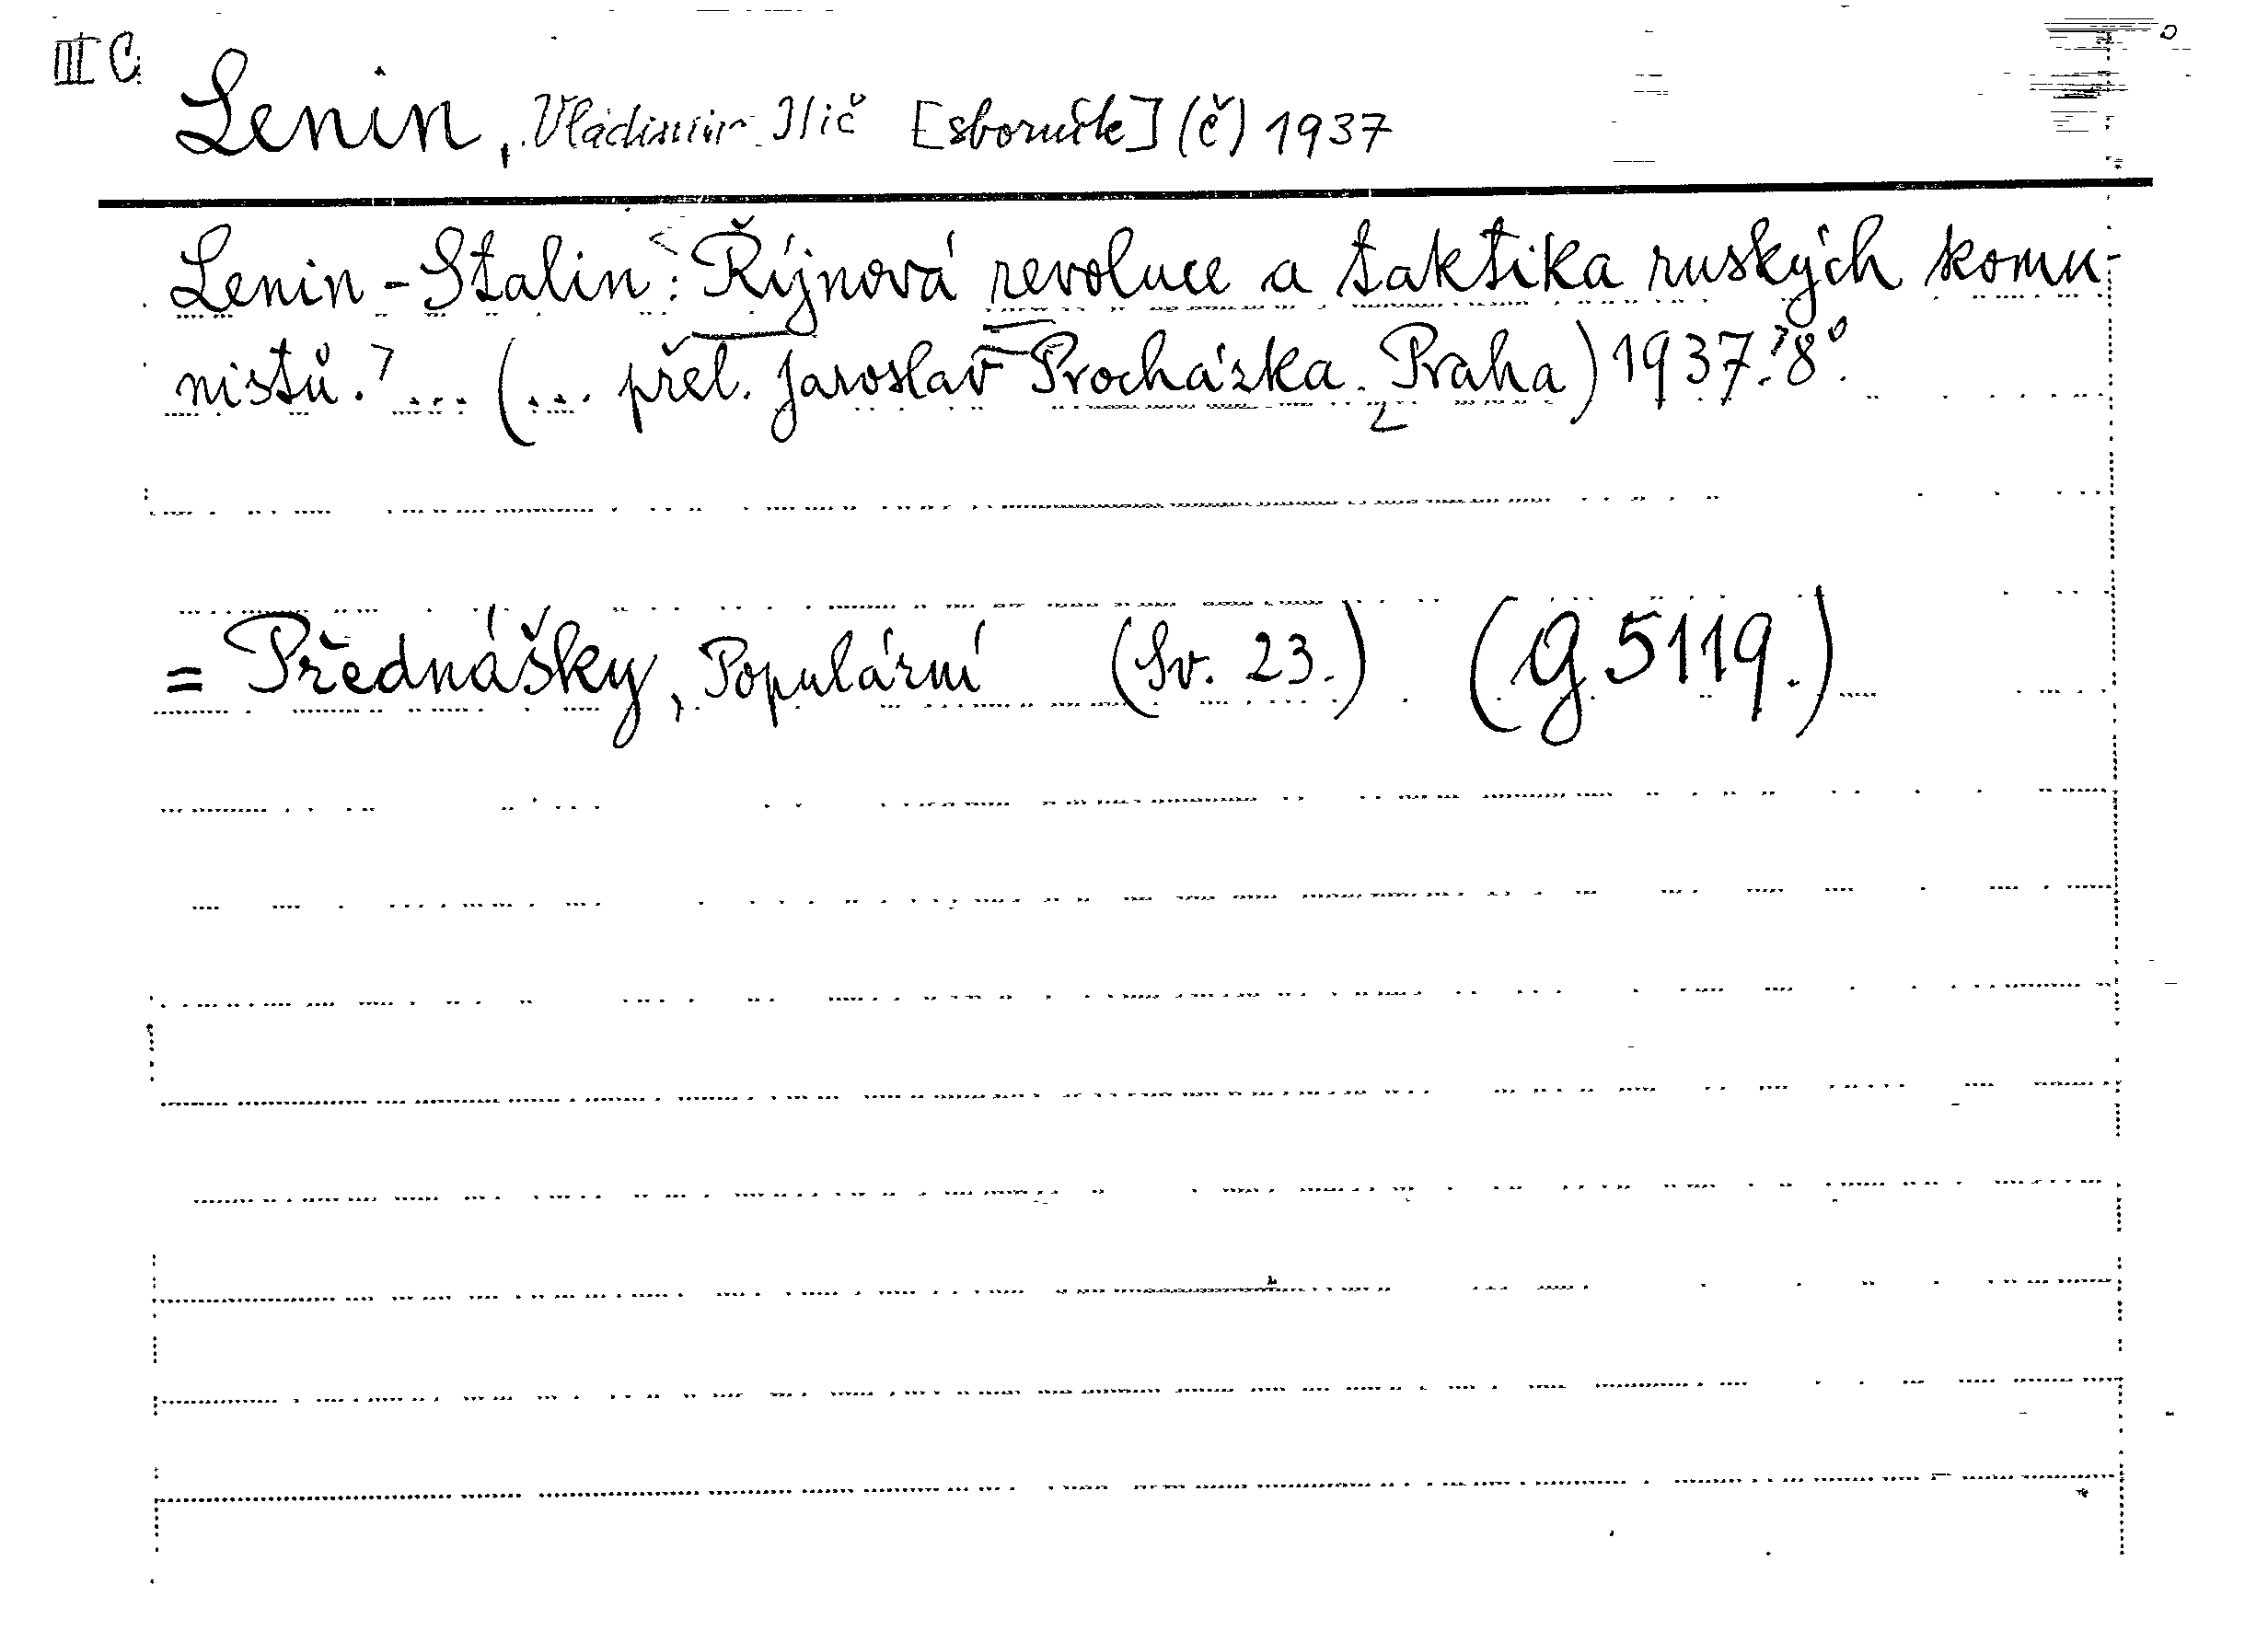 III C
Lenin, Vladimir Ilič [sborník] (č) 1937
Lenin-Stalin: <Říjnová revoluce a taktika ruských komu-
nistů.> ... (... přel. Jaroslav Procházka. Praha) 1937. 8°.
= Přednášky, Populární (Sv. 23.) (G 5119.)